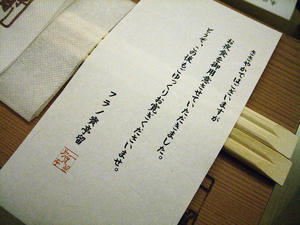 ささやかではございますが
お夜食を御用意させていただきました。
どうぞ、この後もごゆっくりお寛ぎくださいませ。
フラノ寶亭留